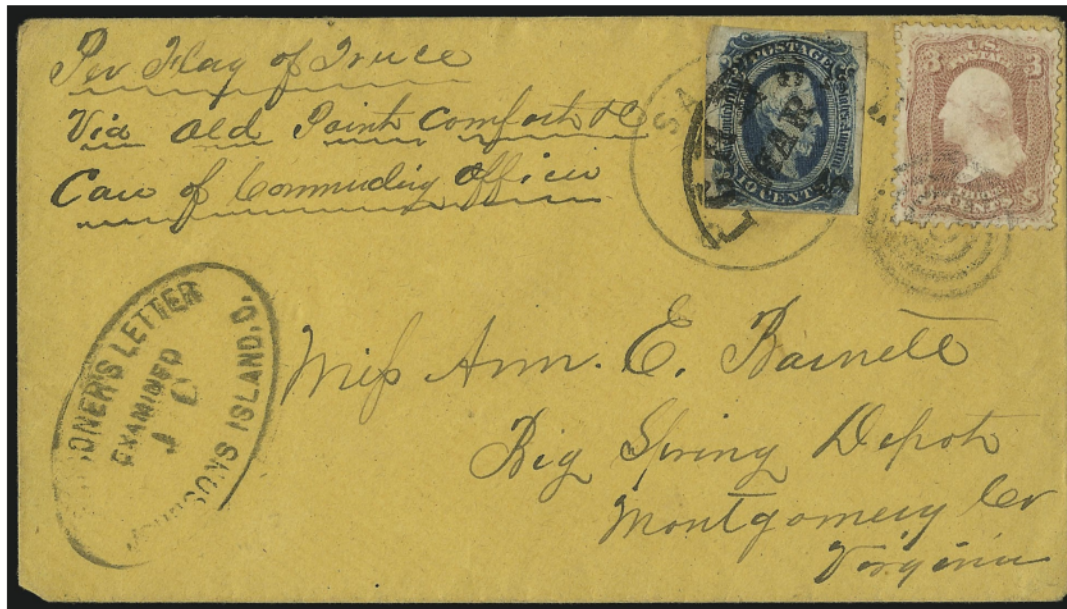 Per Flag of Truce
Via Old Point Comfort &c
Care of Commuding Officer
POSTAGE
10 CENTS
U.S.
POSTAGE
3 3
CENTS
SA
MAR
PRISONER'S LETTER
EXAMINED
J C
JOHNSONS ISLAND, O.
Miss Ann. E. Barnett
Big Spring Depot
Montgomery Co
Virginia